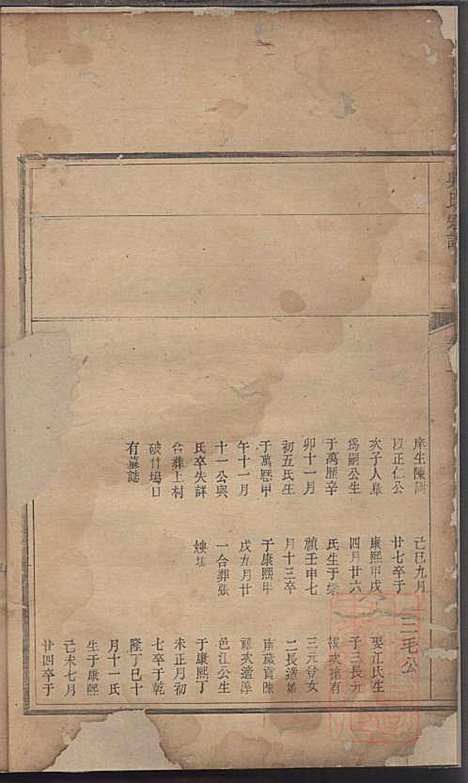 氏宗譜
庠生陳
以正仁公
次子人
為嗣公生
于萬歷辛
卯十一月
初五氏生
于萬歷甲
午十一月
十一公與
氏卒失詳
合葬上村
破竹塢口
有墓誌
己巳九月
廿七卒于
康熙甲戌
四月廿六
氏生于
順壬申七
月十三卒
于康熙甲
戌九月廿
一合葬張
娘
三毛公
娶江氏生
子三長
次
三元登女
二長適
南歲貢陳
次適
邑江公生
于康熙丁
未正月初
七卒于乾
隆丁巳十
月十一氏
生于康熙
己未七月
廿四卒于